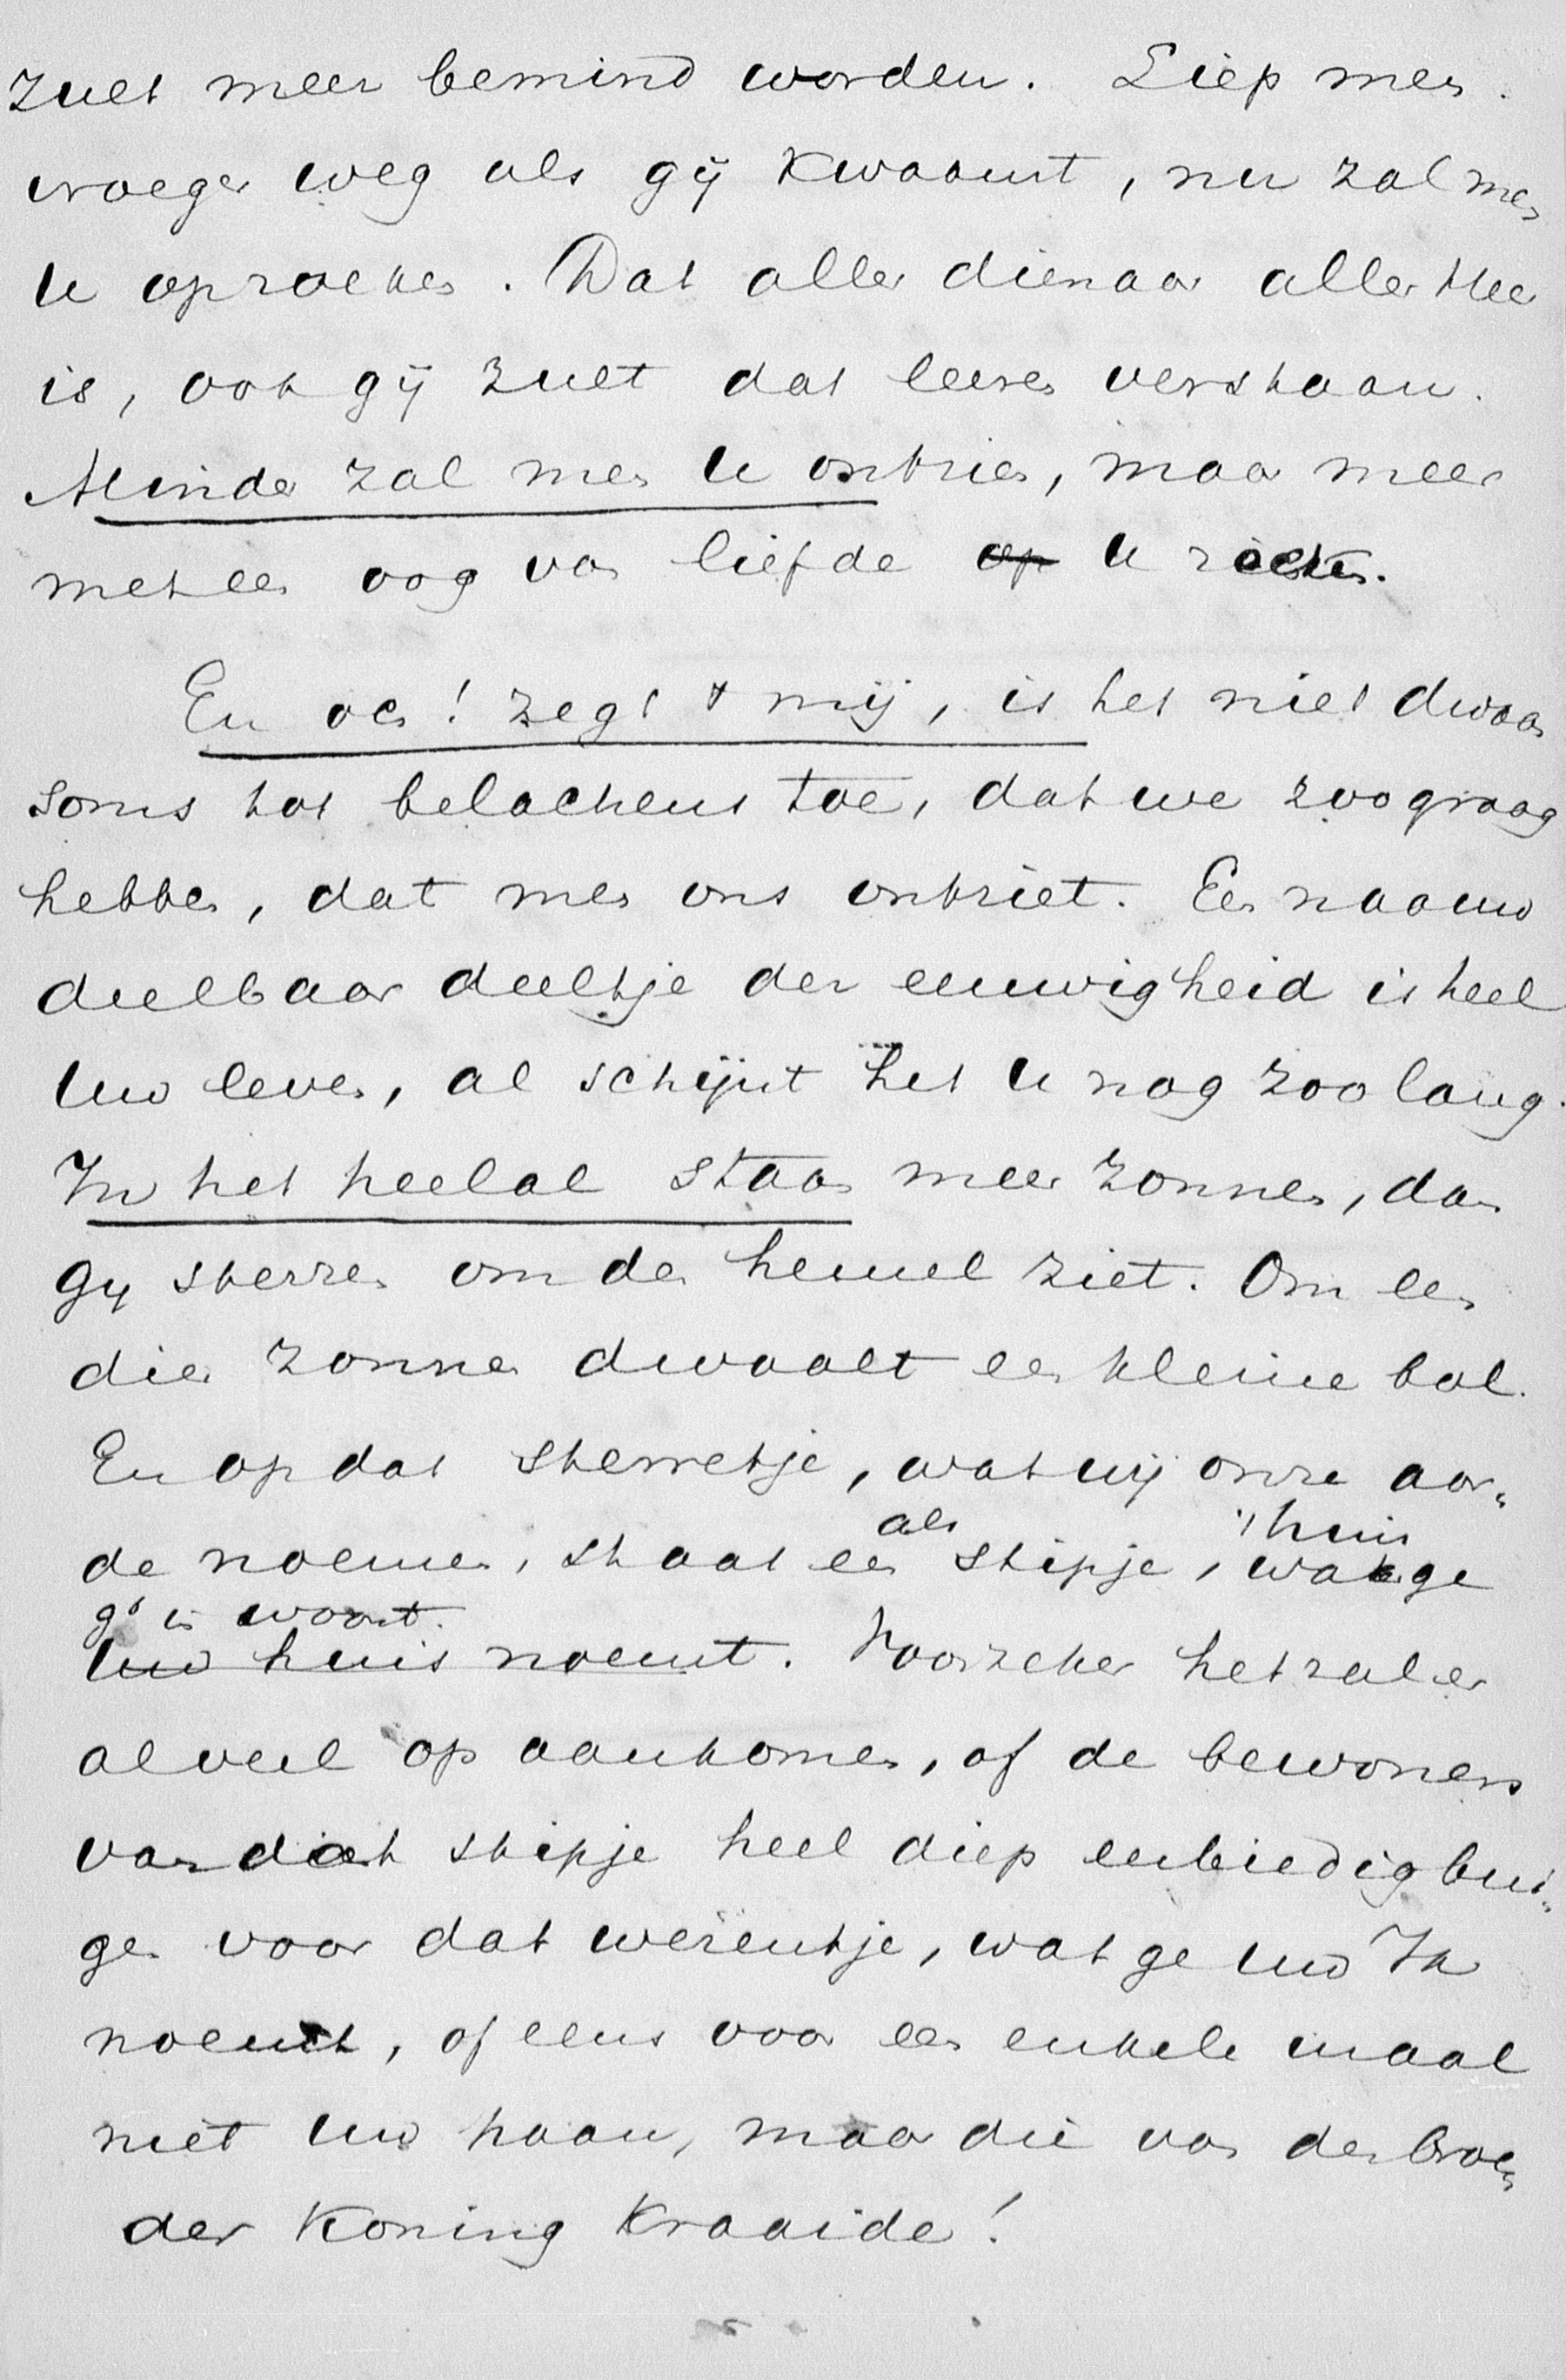 zult meer bemind worden. Liep men
vroeger weg als gij kwaamt, nu zal men
U opzoeken. Dat aller dienaar aller Heer
is, ook gij zult dat leeren verstaan.
Minder zal men U ontzien, maar meer
met een oog van liefde op U zien.
En och! zegt mij, is het niet dwaas
soms tot belachens toe, dat we zoo graag
hebben, dat men ons ontziet. Een naauw
deelbaar deeltje der eeuwigheid is heel
Uw leven, al schijnt het U nog zoo lang.
In het heelal staan meer zonnen, dan
gij sterren om den hemel ziet. Om een
dier zonnen dwaalt een kleine bol.
En op dat sterretje, wat wij onze aar-
als 't huis
de noemen, staat een stipje, wat ge
g' in woont.
Uw huis noemt. Voorzeker het zal er
al veel op aankomen, of de bewoners
van dat stipje heel diep eerbiedig bui-
gen voor dat wezentje, wat ge Uw Ik
noemt, of eens voor een enkele maal
niet Uw haan, maar die van den broe-
der Koning Kraaide!